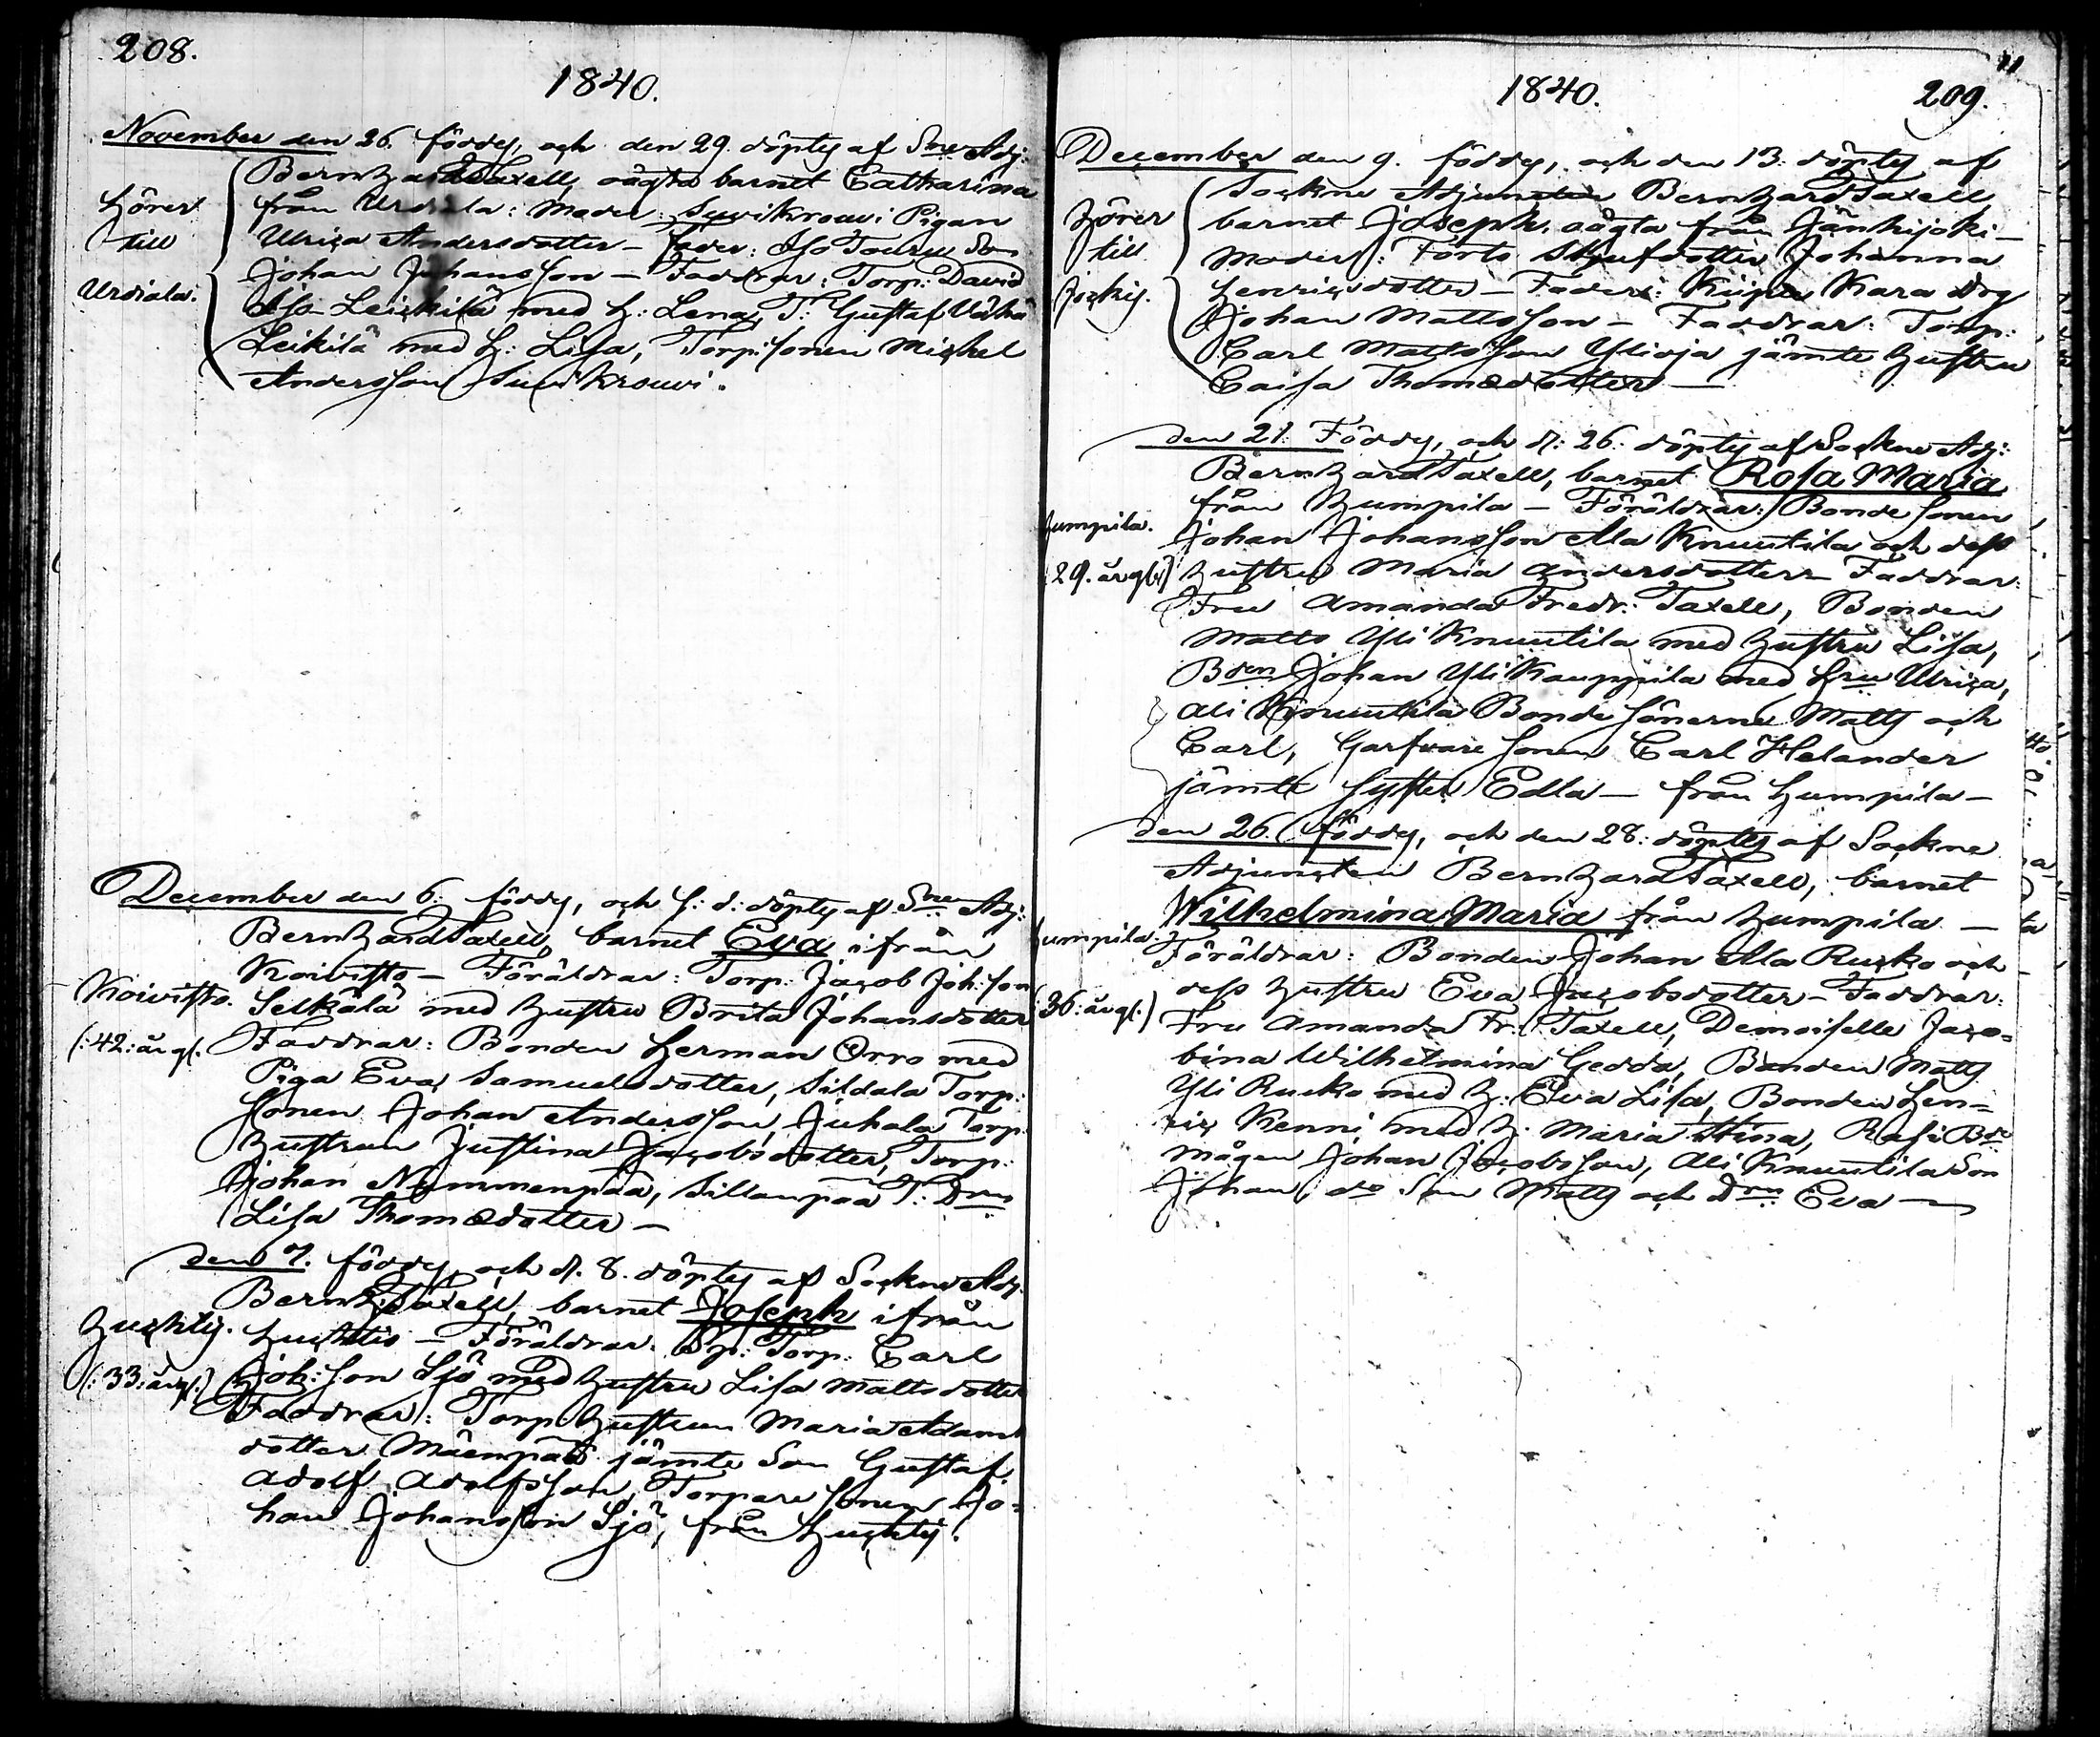 208.
1840.
November den 26. föddes, och den 29. döptes af Sne Adj:
Bernhard Taxell, oägta barnet Catharina
hörer
från Urdiala: Moder: Suvikrouvi Pigan
till
Ulrica Andersdotter – Fader: Iso Touru Son
Urdiala.
Johan Johansson – Faddrar: Torp: David
Iso Leickilä med h: Lena, T: Gustaf Vähä
Leikilä med h: Lisa, Torp: sonen Michel
Andersson Suvikrouvi.
December den 6. föddes, och s: d: döptes af Sne Adj:
Bernhard Taxell, barnet Eva ifrån
Koivisto – Föräldrar: Torp: Jacob Joh: son
Koivisto.
Selkälä med hustru Brita Johansdotter
(:42: år gl.
Faddrar: Bonden Herman Orro med
Piga Eva Samuelsdotter, Sildala Torp:
sonen Johan Andersson, Juhala Torp:
hustrun Justina Jacobsdotter, Torp:
Johan Nummenpää, Sillanpää T: Drn
Lisa Thomædotter –
den 7. föddes, och d. 8. döptes af Sockne Adj:
Bernh: Taxell, barnet Joseph ifrån
Huchtis.
Huchtis – Föräldrar: Torp: Carl
(:33: år gl:)
Joh: son Sjö med hustru Lisa Mattsdotter
Faddrar: Torp: hustrun Maria Adams
dotter Mäenpää jämte Son Gustaf
Adolf Adolfsson, Torpare sonen Jo=
han Johansson Sjö, från Huchtis.
1840.
209.
December den 9. föddes, och den 13. döptes af
Sockne Adjuncten Bernhard Taxell
hörer
barnet Joseph, oägta från Jänhijoki –
till
Moder: Torto Skjufdotter Johanna
Jockis.
Henricsdotter – Fader: Kuipu Kara Drg
Johan Mattsson – Faddrar: Torp:
Carl Mattsson Ylioja jämte hustru
Caisa Thomædotter –
den 21. Föddes, och d: 26: döptes af Sockne Adj:
Bernhard Taxell, barnet Rosa Maria
från Humpila – Föräldrar: Bonde sonen
Humpila.
Johan Johansson Ala Knuutila och dess
29. år gl:)
hustru Maria Andersdotter – Faddrar:
Fru Amanda Fredr: Taxell, Bonden
Matts Yli Knuutila med hustru Lisa,
Bden Johan Yli Kauppila med hru Ulrica,
Ali Knuutila Bonde sönerne Matts och
Carl, Garfvare sonen Carl Helander
jämte syster Edla – från Humpila –
den 26. föddes, och den 28: döptes af Sockne
Adjuncten Bernhard Taxell, barnet
Wilhelmina Maria från Humpila –
Humpila.
Föräldrar: Bonden Johan Ala Rucko och
dess hustru Eva Jacobsdotter – Faddrar:
(36: år gl.)
Fru Amanda Fr: Taxell, Demoiselle Jaco=
bina Wilhelmina Gedda, Bonden Matts
Yli Rucko med h: Eva Lisa, Bonden Hen=
ric Kenni med h: Maria Stina, Rasi Bde
mågen Johan Jacobsson, Ali Knuutila Son
Johan, do Son Matts och Drn Eva –